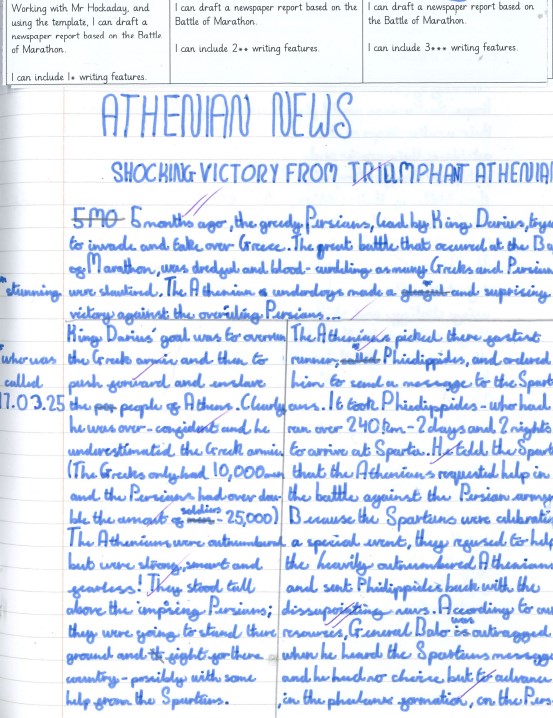 Working with Mr Hockaday, and
using the template, I can draft a
newspaper report based on the Battle
of Marathon.
I can include 1* writing features.
I can draft a newspaper report based on the
Battle of Marathon.
I can include 2** writing features.
I can draft a newspaper report based on
the Battle of Marathon.
I can include 3*** writing features.
ATHENIAN NEWS
SHOCKING VICTORY FROM TRIUMPHANT ATHENIAN
5 MO 5 months ago, the greedy Persians, lead by King Darius, trye
to invade and take over Greece. The great battle that occured at the Ba
of Marathon, was dredgul and blood-curdling as many Greeks and Persian
were slautired. The Athenian underdogs made a and suprising
stunning
victory against the overuling Persians...
King Darius' goal was to overrun
the Greek armie and then to
push forward and enslave
the people of Athens. Clearly
he was over-confident and he
underestimated the Greek armie
(The Greeks only had 10,000 men
and the Persians had over dou-
ble the amount of men soldiers - 25,000)
The Athenians were outnumbered
but were strong, smart and
fearless! They stood tall
above the imposing Persians;
they were going to stand there
ground and fight for there
country - possibly with some
help from the Spartans.
who was
called
17.03.25
The Athenians picked there fastest
runner, called Phidippides, and ordered
him to send a message to the Spart
ans. It took Phidippides - who had
ran over 240km - 2 days and 2 nights
to arrive at Sparta. He told the Spart
that the Athenians requested help in
the battle against the Persian army
Because the Spartans were celebratin
a special event, they refused to help
the heavily outnumbered Athenians
and sent Philippides back with the
dissapointing news. According to our
resources, General Balo was outragged
when he heard the Spartans message
and he had no choice but to advance
, in the phalanx formation, on the Pers